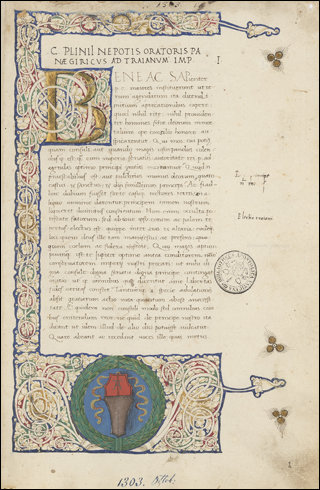 1503
C. PLINII NEPOTIS ORATORIS PA
NEGIRICVS AD TRAIANVM IMP
I
BENE AC SAPienter
p. c. maiores instituerunt ut re
rum agendarum ita dicendi i
nitium a precationibus capere
quod nihil rite nihil providen
ter homines sine deorum immor
talium ope consilio honore au
spicarentur. Qui mos cui potius
quam consuli aut quando magis usurpandus colen
dusque est quam cum imperio senatus auctoritate rei p. ad
agendas optimo principi gratias
praestabilius est aut pulchrius munus deorum quam
castus et sanctus et diis simillimus princeps. Ac si ad
huc dubium fuisset forte casu rectores terris an
aliquo numine darentur principem tamen nostrum
liqueret divinitus constitutum. Non enim occulta po
testate fatorum sed ab iove ipso coram ac palam re
pertus electus est quippe inter aras et altaria
loci quem deus ille tam manifestus ac praesens
quam coelum ac sidera insedit. Quo magis aptum
piumque est te iupiter optime antea conditorem nunc
conservatorem imperii nostri precari ut mihi di
gna consule digna senatu digna principe contingat
oratio utque omnibus quae dicentur a me libertas
fides veritas constet Tantumque a specie adulationis
absit gratiarum actio mea quantum abest a necessi
tate. Equidem non consuli modo sed omnibus civi
bus enitendum reor ne quid de principe nostro ita
dicant ut idem illud de alio dici potuisse videatur.
Quare abeant ac recedant voces illae quas metus
1303.